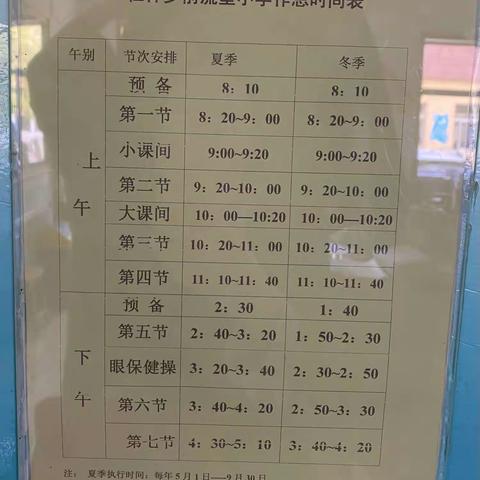 小学作息时间表
午别 节次安排 夏季 冬季
上午
预 备 8：10 8：10
第一节 8：20~9：00 8：20~9：00
小课间 9:00~9:20 9:00~9:20
第二节 9：20~10：00 9：20~10：00
大课间 10：00—10:20 10：00—10:20
第三节 10：20~11：00 10：20~11：00
第四节 11：10~11：40 11：10~11：40
下午
预 备 2：30 1：40
第五节 2：40~3：20 1：50~2：30
眼保健操 3：20~3：40 2：30~2：50
第六节 3：40~4：20 2：50~3：30
第七节 4：30~5：10 3：40~4：20
注： 夏季执行时间：每年5月1日——9月30日